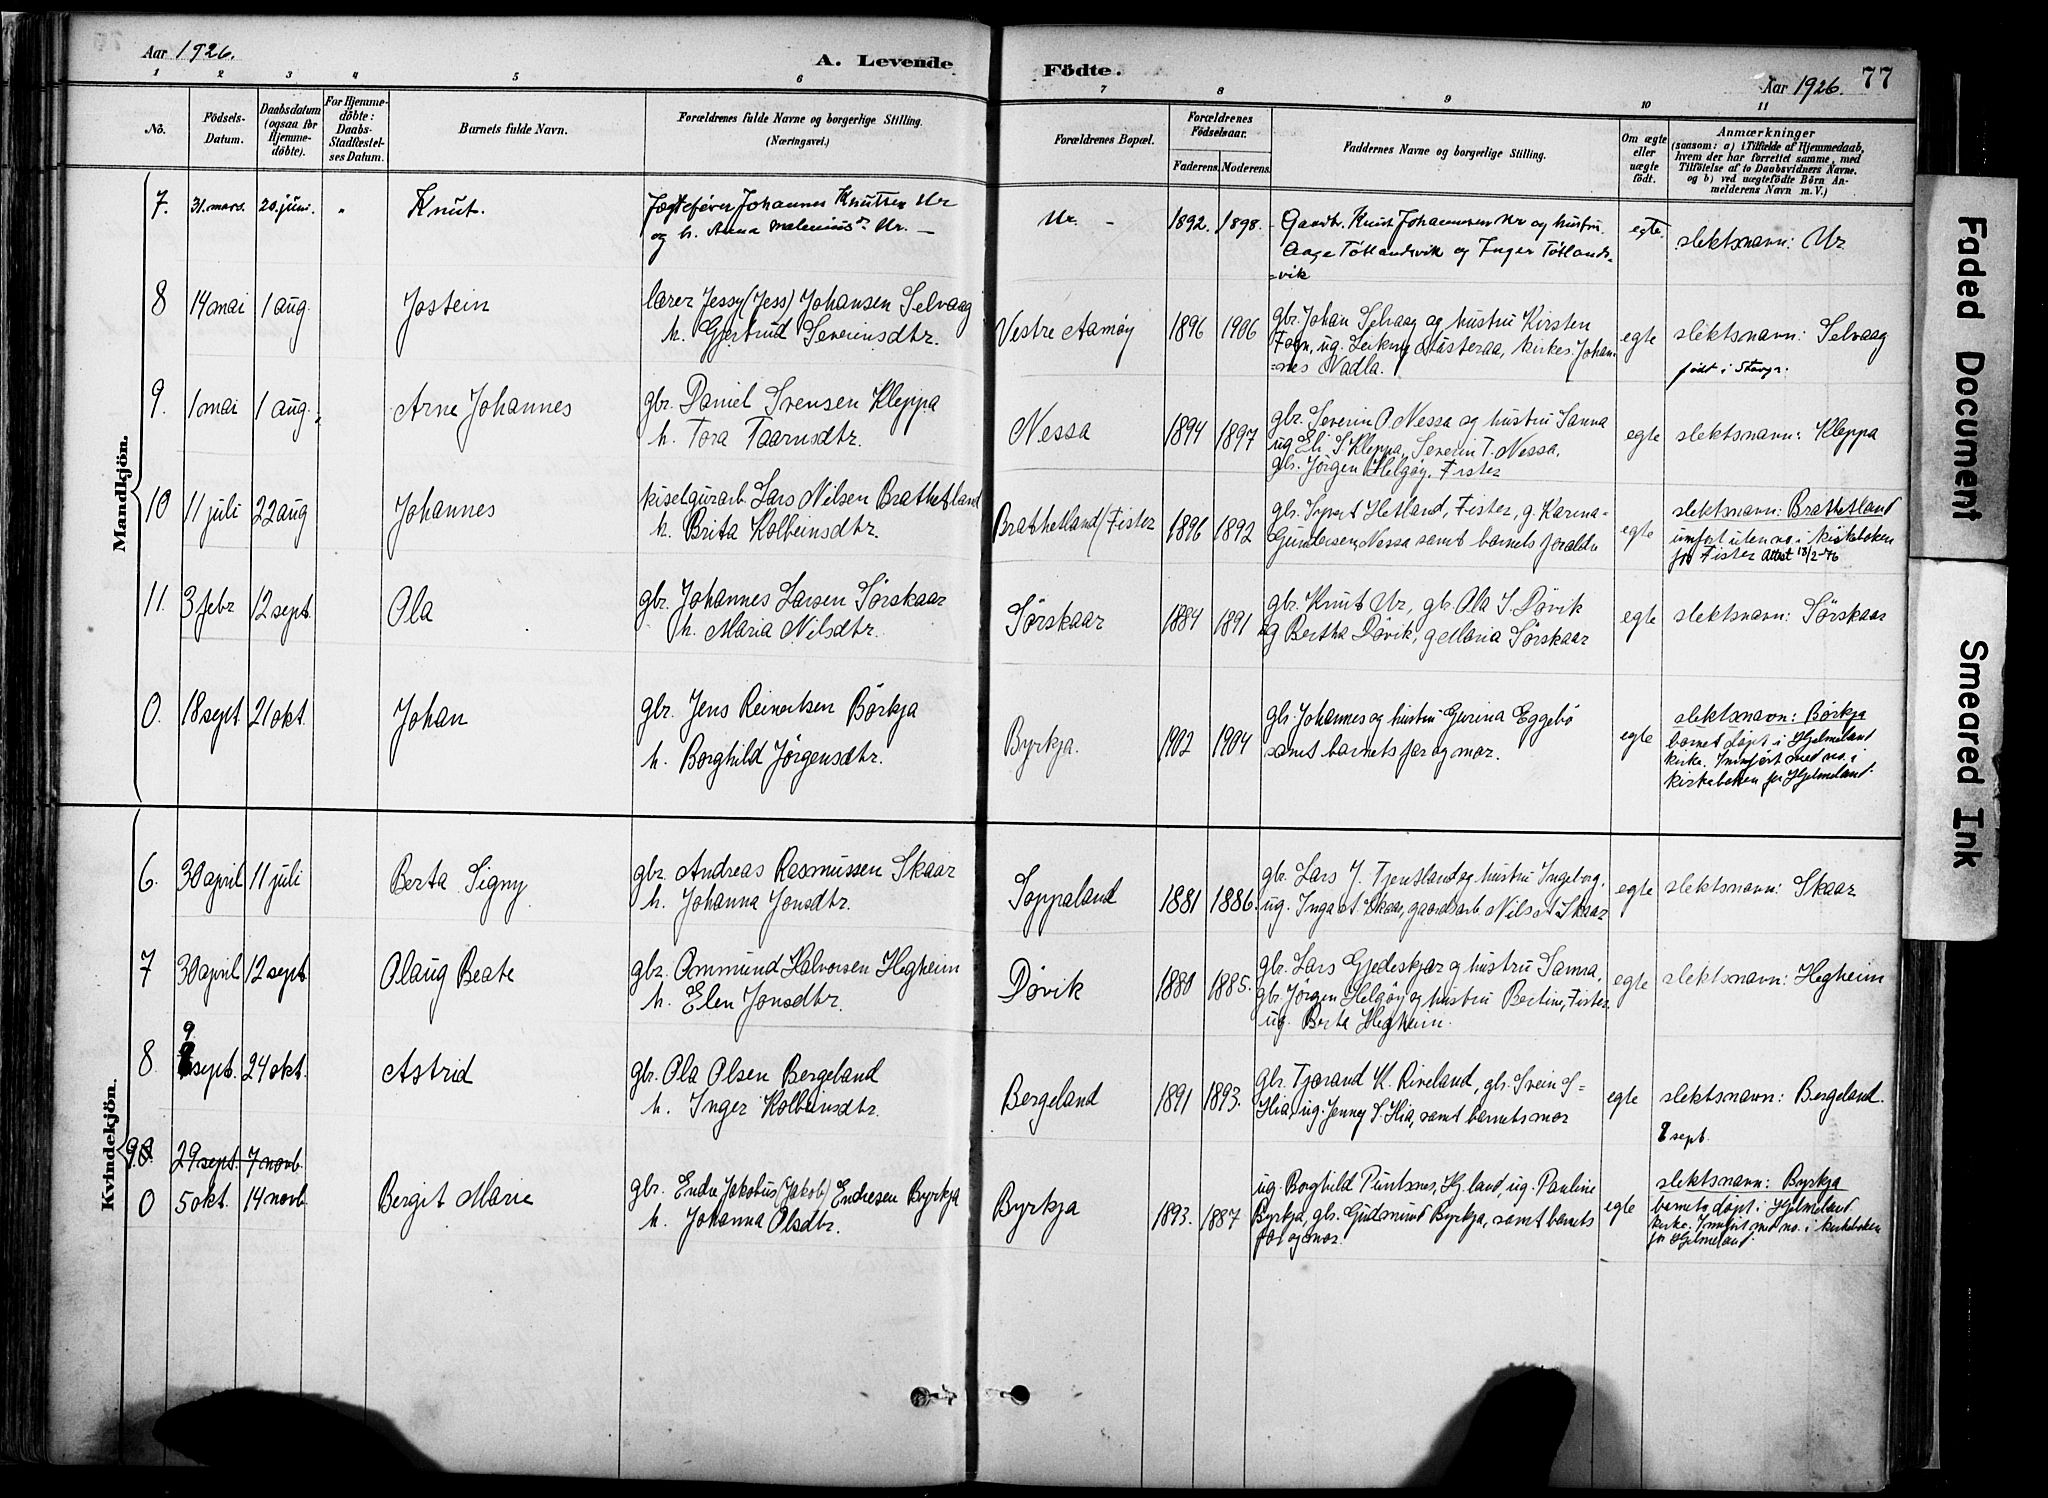 Aar 1926.
A. Levende
Födte.
Aar 1926. 77
1 2 3 4 5 6 7 8 9 10 11
No.
Födsels-Datum.
Daabsdatum (ogsaa for Hjemmedöbte).
For Hjemmedöbte: Daabs-Stadfæstelses Datum.
Barnets fulde Navn.
Forældrenes fulde Navne og borgerlige Stilling. (Næringsvei.)
Forældrenes Bopæl.
Forældrenes Födselsaar.
Faderens. Moderens.
Faddernes Navne og borgerlige Stilling.
Om ægte eller uægte födt.
Anmærkninger
(saasom: a) i Tilfælde af Hjemmedaab,
hvem der har forrettet samme, med
Tilföielse af to Daabsvidners Navne.
og b) ved uægtefödte Börn An-
melderens Navn m. V.)
Mandkjön.
7. 31. mars. 20. juni. " Knut.
Jægtefører Johannes Knutsen Ur
og h. Anna Maleniusdr. Ur. —
Ur. - 1892. 1898.
Gaardbr. Knut Johannesen Ur og hustru.
Aage Tøtlandsvik og Inger Tøtlands-
=vik
egte. slektsnavn: Ur
8 14 mai 1 aug. Jostein
lærer Jessy (Jess) Johansen Selvaag
h. Gjertrud Severinsdtr.
Vestre Aamøy 1896 1906
gbr. Johan Selvaag og hustru Kirsten
Fogn, ug. Østeraa, kirkes. Johan-
=nes Nadla.
egte slektsnavn: Selvaag
født i Stavgr.
9. 1 mai 1 aug. Arne Johannes
gbr. Daniel Svensen Kleppa
h. Tora Taarnsdtr.
Nessa 1894 1897
gbr. Severin O. Nessa og hustru Sanna
ug Eli S. Kleppa, Severin T. Nessa,
gbr. Jörgen Helgöy, Fister
egte slektsnavn: Kleppa
10 11 juli 22 aug Johannes
kiselgurarb. Lars Nilsen Brathetland
h. Brita Kolbeinsdtr.
Brathetland/Fister 1896 1892
gbr. Sivert Hetland, Fister, g. Karina
Gundersen, Nessa samt barnets foreldre
egte slektsnavn: Brathetland
innført uten no. i kirkeboken
for Fister Attest 18/2-76
11. 3 febr 12 sept. Ola
gbr. Johannes Larsen Sørskaar
h. Maria Nilsdtr.
Sørskaar 1884 1891
gbr. Knut Ur, gbr. Ola S. Døvik
og Bertha Døvik, g Maria Sørskaar
egte slektsnavn: Sørskaar
0. 18 sept. 21 okt. Johan
gbr. Jens Reinertsen Börkja
h. Borghild Jörgensdtr.
Byrkja. 1902 1904
gbr. Johannes og hustru Gurina Eggebö
samt barnets far og mor.
egte slektsnavn: Børkja
barnet døpt i Hjelmeland
kirke. Innført med no. i
kirkeboken for Hjelmeland.
Kvindekjön.
6. 30 april 11 juli Berta Signy
gbr. Andreas Rasmussen Skaar
h. Johanna Jonsdtr.
Soppaland 1881 1886.
gbr. Lars J. Tjentland og hustru Ingeborg.
ug. Inga A Skaar, gaardsarb. Nils A Skaar
egte slektsnavn: Skaar
7 30 april 12 sept Olaug Beate
gbr. Ommund Halvorsen Hegheim
h. Elen Jonsdtr.
Døvik 1880 1885.
gbr. Lars Gjedeskjær og hustru Sanna,
gbr. Jörgen Helgöy og hustru Bertine, Fister
ug. Berta Hegheim.
egte slektsnavn: Hegheim
9
8. 8 sept. 24 okt. Astrid
gbr. Ola Olsen Bergeland
h. Inger Kolbeinsdtr.
Bergeland 1891 1893.
gbr. Tjørand K. Riveland, gbr. Svein S=
Hia, ug. Jenny S. Hia, samt barnets mor
egte slektsnavn: Bergeland.
8 sept.
9. 29 sept. 7 novb.
0 5 okt. 14 novb. Bergit Marie
gbr. Endre Jakobus (Jakob) Endresen Byrkja
h. Johanna Olsdtr.
Byrkja 1893. 1887
ug. Borghild Puntsnes, Hj.land, ug. Pauline
Byrkja, gbr. Gudmund Byrkja, samt barnets
far og mor.
egte slektsnavn: Byrkja
barnet døpt i Hjelmeland
kirke. Innført med no. i kirkeboken
for Hjelmeland.
Faded Document
Smeared Ink